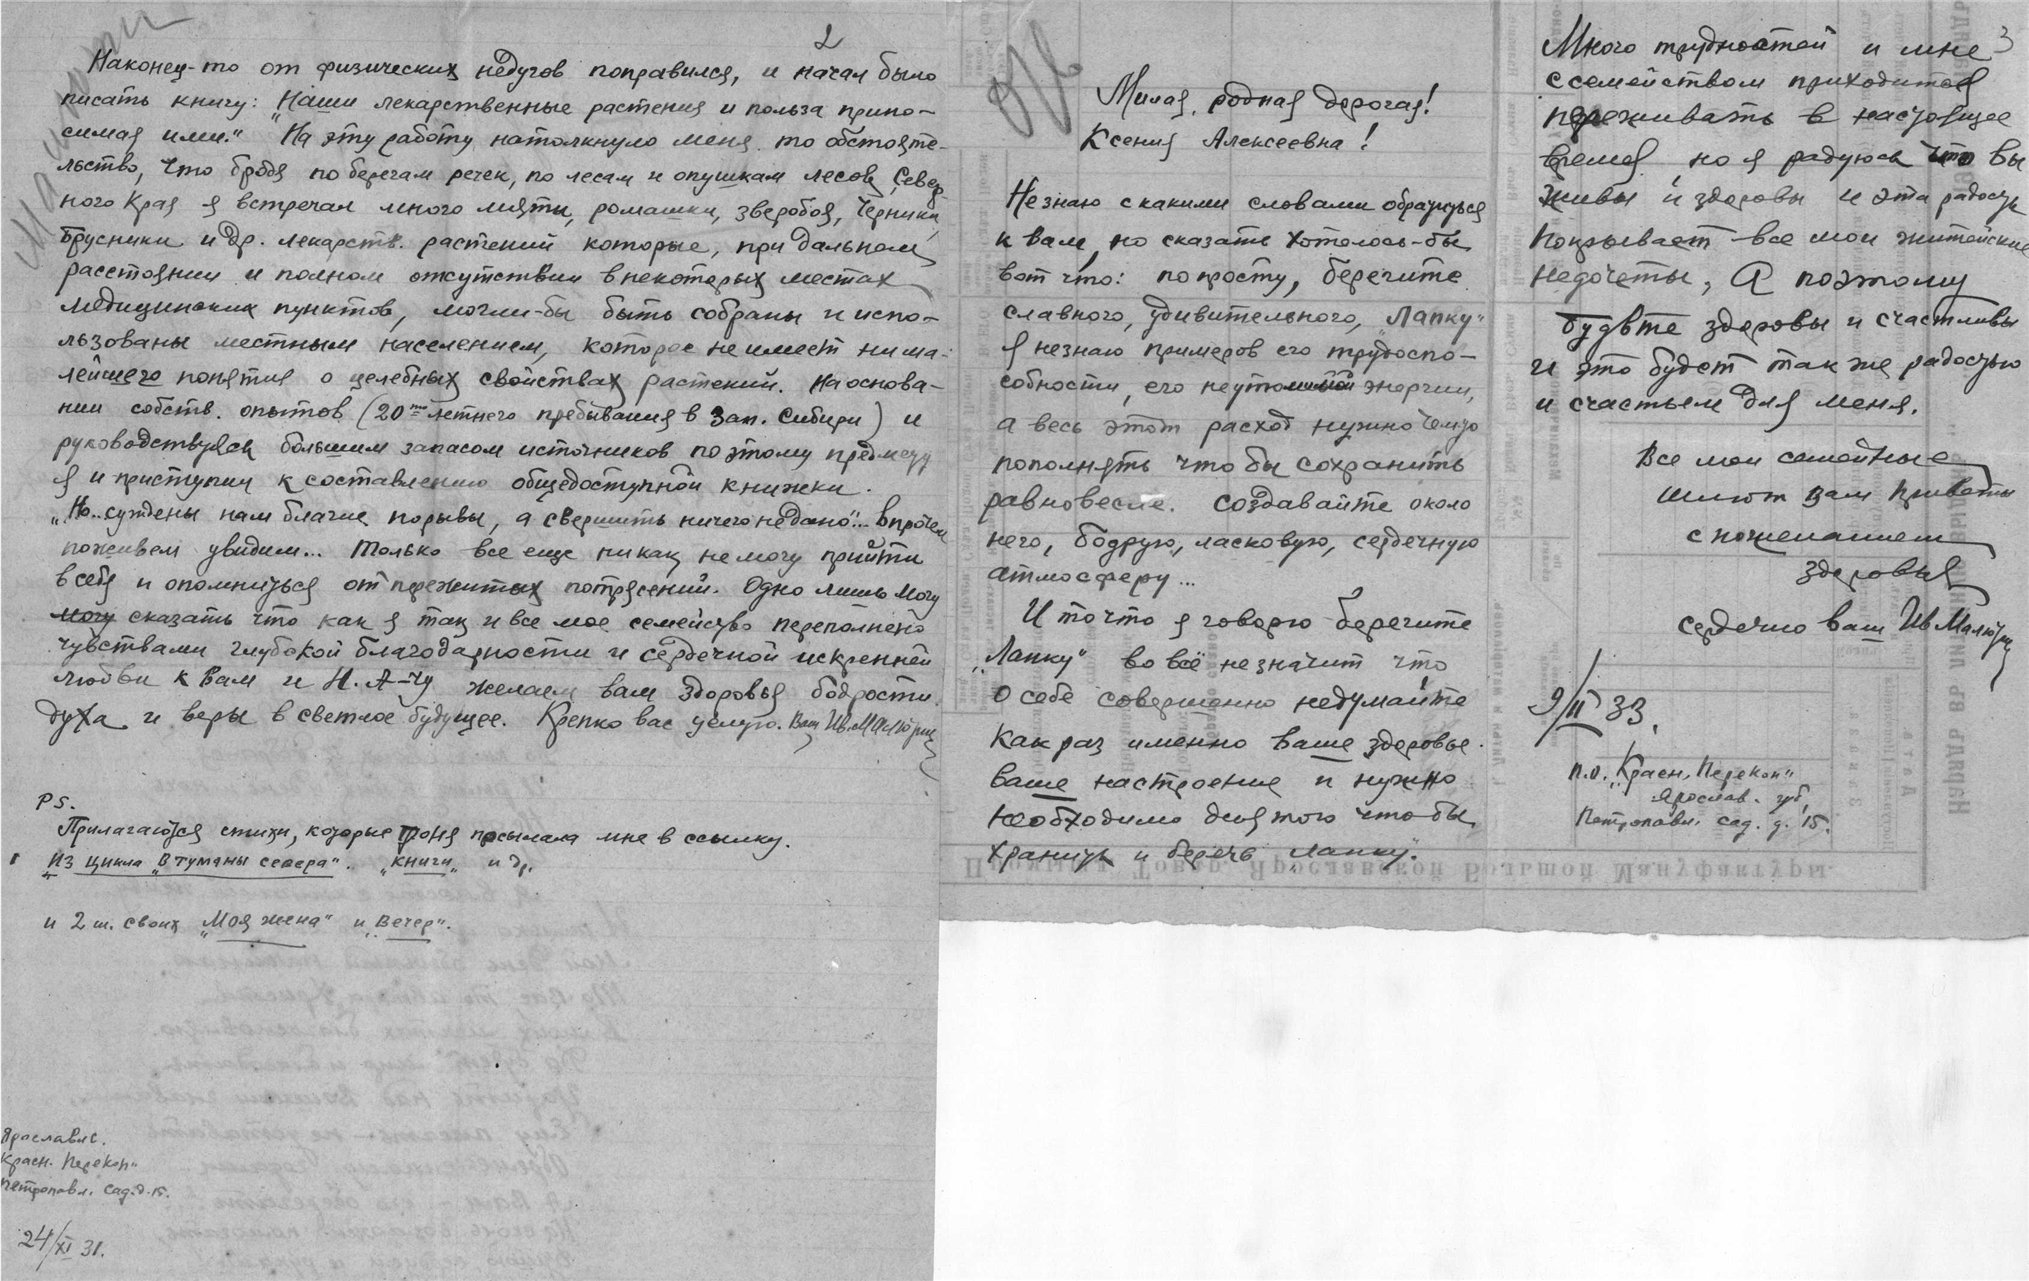 2
Наконец-то от физических недугов поправился, и начал было
писать книгу: "Наши лекарственные растения и польза прино-
симая ими." На эту работу натолкнуло меня то обстояте-
льство, что бродя по берегам речек, по лесам и опушкам лесов Север-
ного Края я встречал много мяты, ромашки, зверобоя, черники,
брусники и др. лекарств. растений которые, при дальнем
расстоянии и полном отсутствии в некоторых местах
медицинских пунктов, могли-бы быть собраны и испо-
льзованы местным населением, которое не имеет ни ма-
лейшего понятия о целебных свойствах растений. На основа-
нии собств. опытов (20ти летнего пребывания в Зап. Сибири) и
руководствуясь большим запасом источников по этому предмету
я и приступил к составлению общедоступной книжки.
"Но.. суждены нам благие порывы, а свершить ничего не дано"... Впрочем
поживем увидим... Только все еще никак не могу прийти
в себя и опомниться от пережитых потрясений. Одно лишь могу
могу сказать что как я так и все мое семейство переполнено
чувствами глубокой благодарности и сердечной искренней
любви к Вам и Н. А-чу желаем вам здоровья бодрости
духа и веры в светлое будущее. Крепко вас целую. Ваш Ив. Малютин
PS.
Прилагаются стихи, которые Тоня посылала мне в ссылку.
Из цикла "В туманы севера". "Книги" и др.
и 2 ш. своих "Моя жена" и "Вечер".
Ярославль.
Красн. Перекоп"
Петропавл. сад. д. 15.
24/XI 31.
Милая, родная дорогая!
Ксения Алексеевна!
Не знаю с какими словами обратиться
к вам, но сказать хотелось-бы
вот что: попросту, берегите
славного, удивительного, "Лапку"
Я незнаю примеров его трудоспо-
собности, его неутомимой энергии,
а весь этот расход нужно чем то
пополнять что бы сохранить
равновесие. Создавайте около
него, бодрую, ласковую, сердечную
атмосферу...
И то что я говорю берегите
"Лапку" во всё незначит что
о себе совершенно недумайте
Как раз именно ваше здоровье
ваше настроение и нужно
необходимо для того что бы
хранить и беречь "Лапку".
Промышл. Товар. Ярославской Большой Мануфактуры.
3
Много трудностей и мне
с семейством приходится
переживать в настоящее
время, но я радуюсь что вы
живы и здоровы и эта радость
покрывает все мои житейские
недочеты, А поэтому
будьте здоровы и счастливы
и это будет так же радостью
и счастьем для меня.
Все мои семейные
шлют вам приветы
с пожеланием
здоровья
Сердечно ваш Ив Малютин
9/II 33.
п.о. "Красн. Перекоп"
Ярослав. губ,
Петропавл. сад. д. 15.